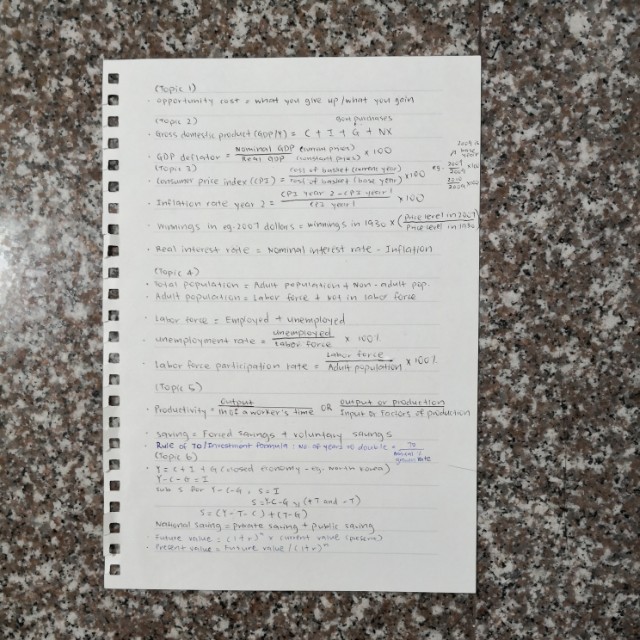 (Topic 1)
• Opportunity cost = what you give up / what you gain
(Topic 2)
Gov purchases
• Gross domestic product (GDP/Y) = C + I + G + NX
• GDP deflator = Nominal GDP (current prices) / Real GDP (constant prices) × 100
(Topic 3)
• Consumer price index (CPI) = cost of basket (current year) / cost of basket (base year) × 100
• Inflation rate year 2 = CPI year 2 - CPI year 1 / CPI year 1 × 100
• Winnings in eg. 2007 dollars = Winnings in 1930 × (Price level in 2007 / Price level in 1930)
• Real interest rate = Nominal interest rate - Inflation
(Topic 4)
• Total population = Adult population + Non-adult pop.
• Adult population = Labor force + Not in labor force
• Labor force = Employed + unemployed
• unemployment rate = unemployed / Labor force × 100%
• Labor force participation rate = Labor force / Adult population × 100%
(Topic 5)
• Productivity = Output / of a worker's time OR output or production / Input or Factors of production
saving = Forced savings + voluntary savings
• Rule of 70/Investment formula: no of years to double = 70 / Annual growth rate
(Topic 6)
• Y = C + I + G (closed economy - eg. North Korea)
Y - C - G = I
sub S for Y - C - G, S = I
S = Y - C - G (+T and -T)
S = (Y - T - C) + (T - G)
National saving = private saving + public saving
• Future value = (1+r)ⁿ × current value (present)
• Present value = Future value / (1+r)ⁿ